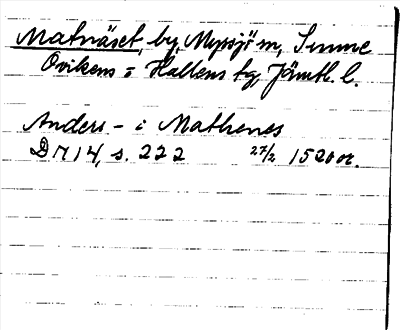 Matnäset, by, Myssjö sn, Sunne
Ovikens o Hallens tg, Jämtl. l.
Anders - i Mathenes
DN 14, s. 222 27/2 1520 or.